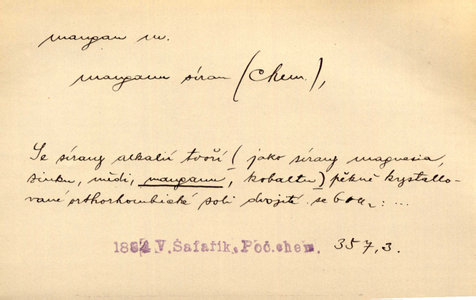 mangan m.
manganu síran (chem.),
Se sírany alkalií tvoří (jako sírany magnesia,
zinku, mědi, manganu, kobaltu) pěkně krystallo-
vané orthorhombické soli dvojité se 6 aq: ...
V. Šafařík, Poč. chem. 357,3.